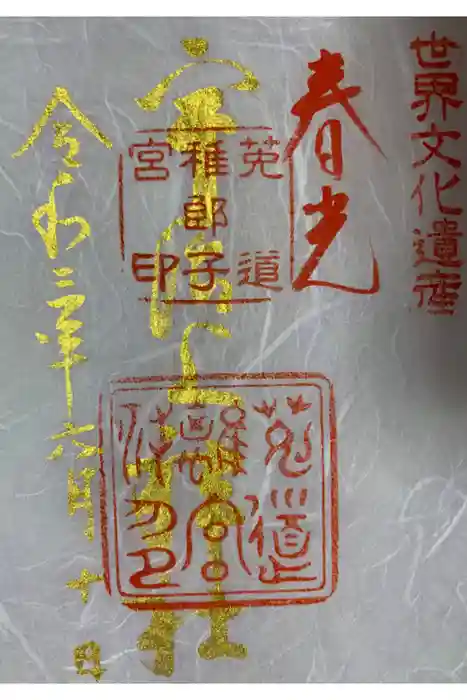 世界文化遺産
春光
宇治上神社
莵道
稚郎子
宮印
菟道
離宮
令和三年六月十日